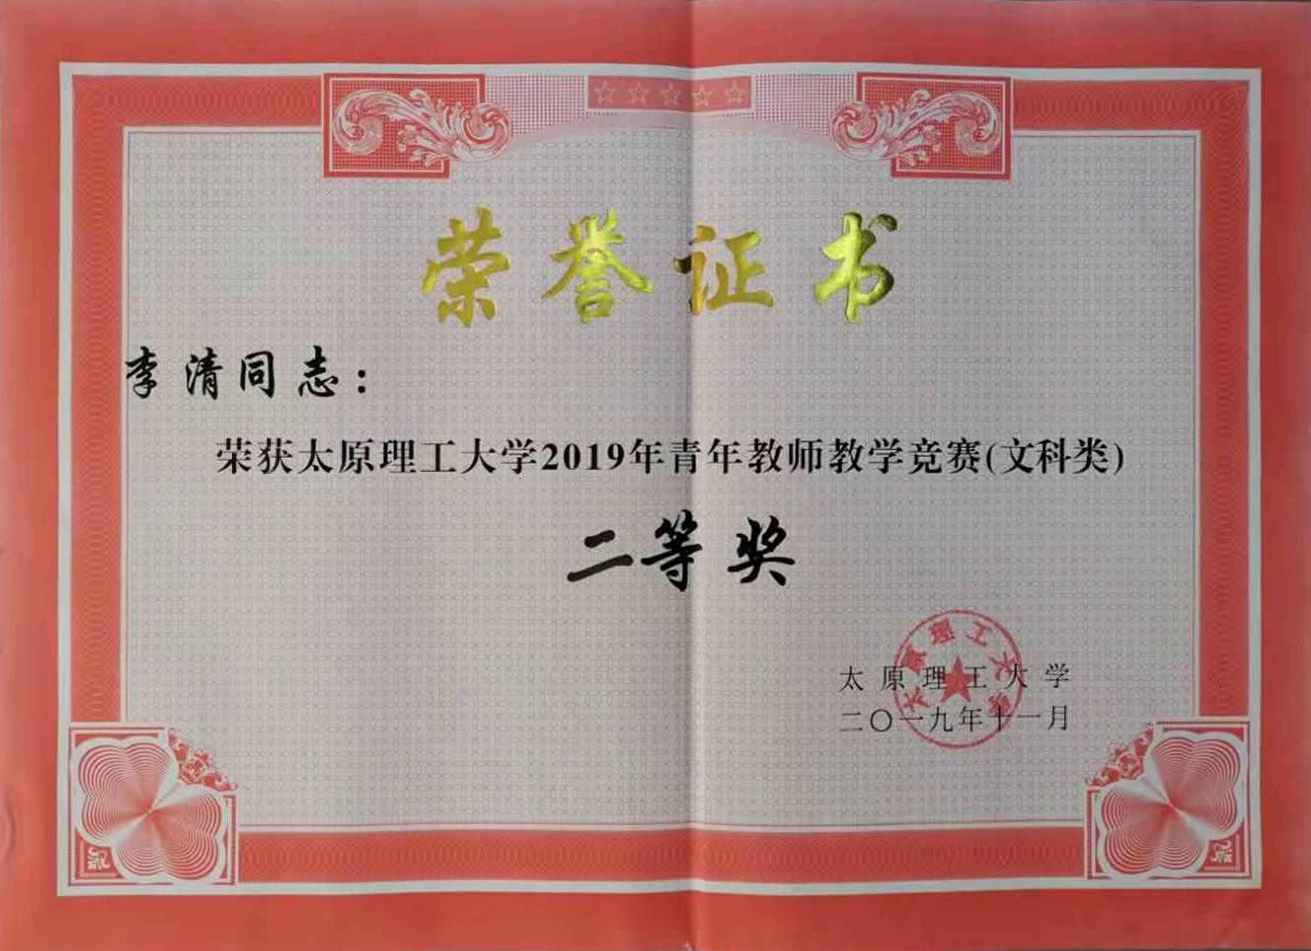 荣誉证书
李清同志:
荣获太原理工大学2019年青年教师教学竞赛(文科类)
二等奖
太原理工大学
太原理工大学
二〇一九年十一月